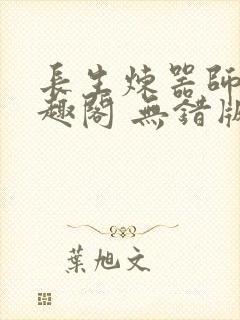 長生煉器師
趣閣 無錯版
葉旭文